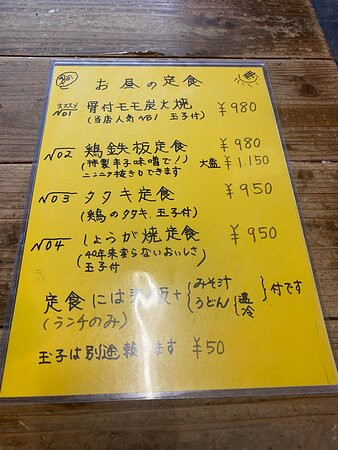 お昼の定食
オススメ
No1 骨付モモ炭火焼 ¥980
(当店人気No1 玉子付)
No2 鶏鉄板定食 ¥980
(特製辛子味噌で!) 大盛 ¥1,150
ニンニク抜きもできます
No3 タタキ定食 ¥950
(鶏のタタキ、玉子付)
No4 しょうが焼定食 ¥950
(40年来変らないおいしさ)
玉子付
定食には + みそ汁 付です
うどん 温
冷
(ランチのみ)
玉子は別途頼 ます ¥50